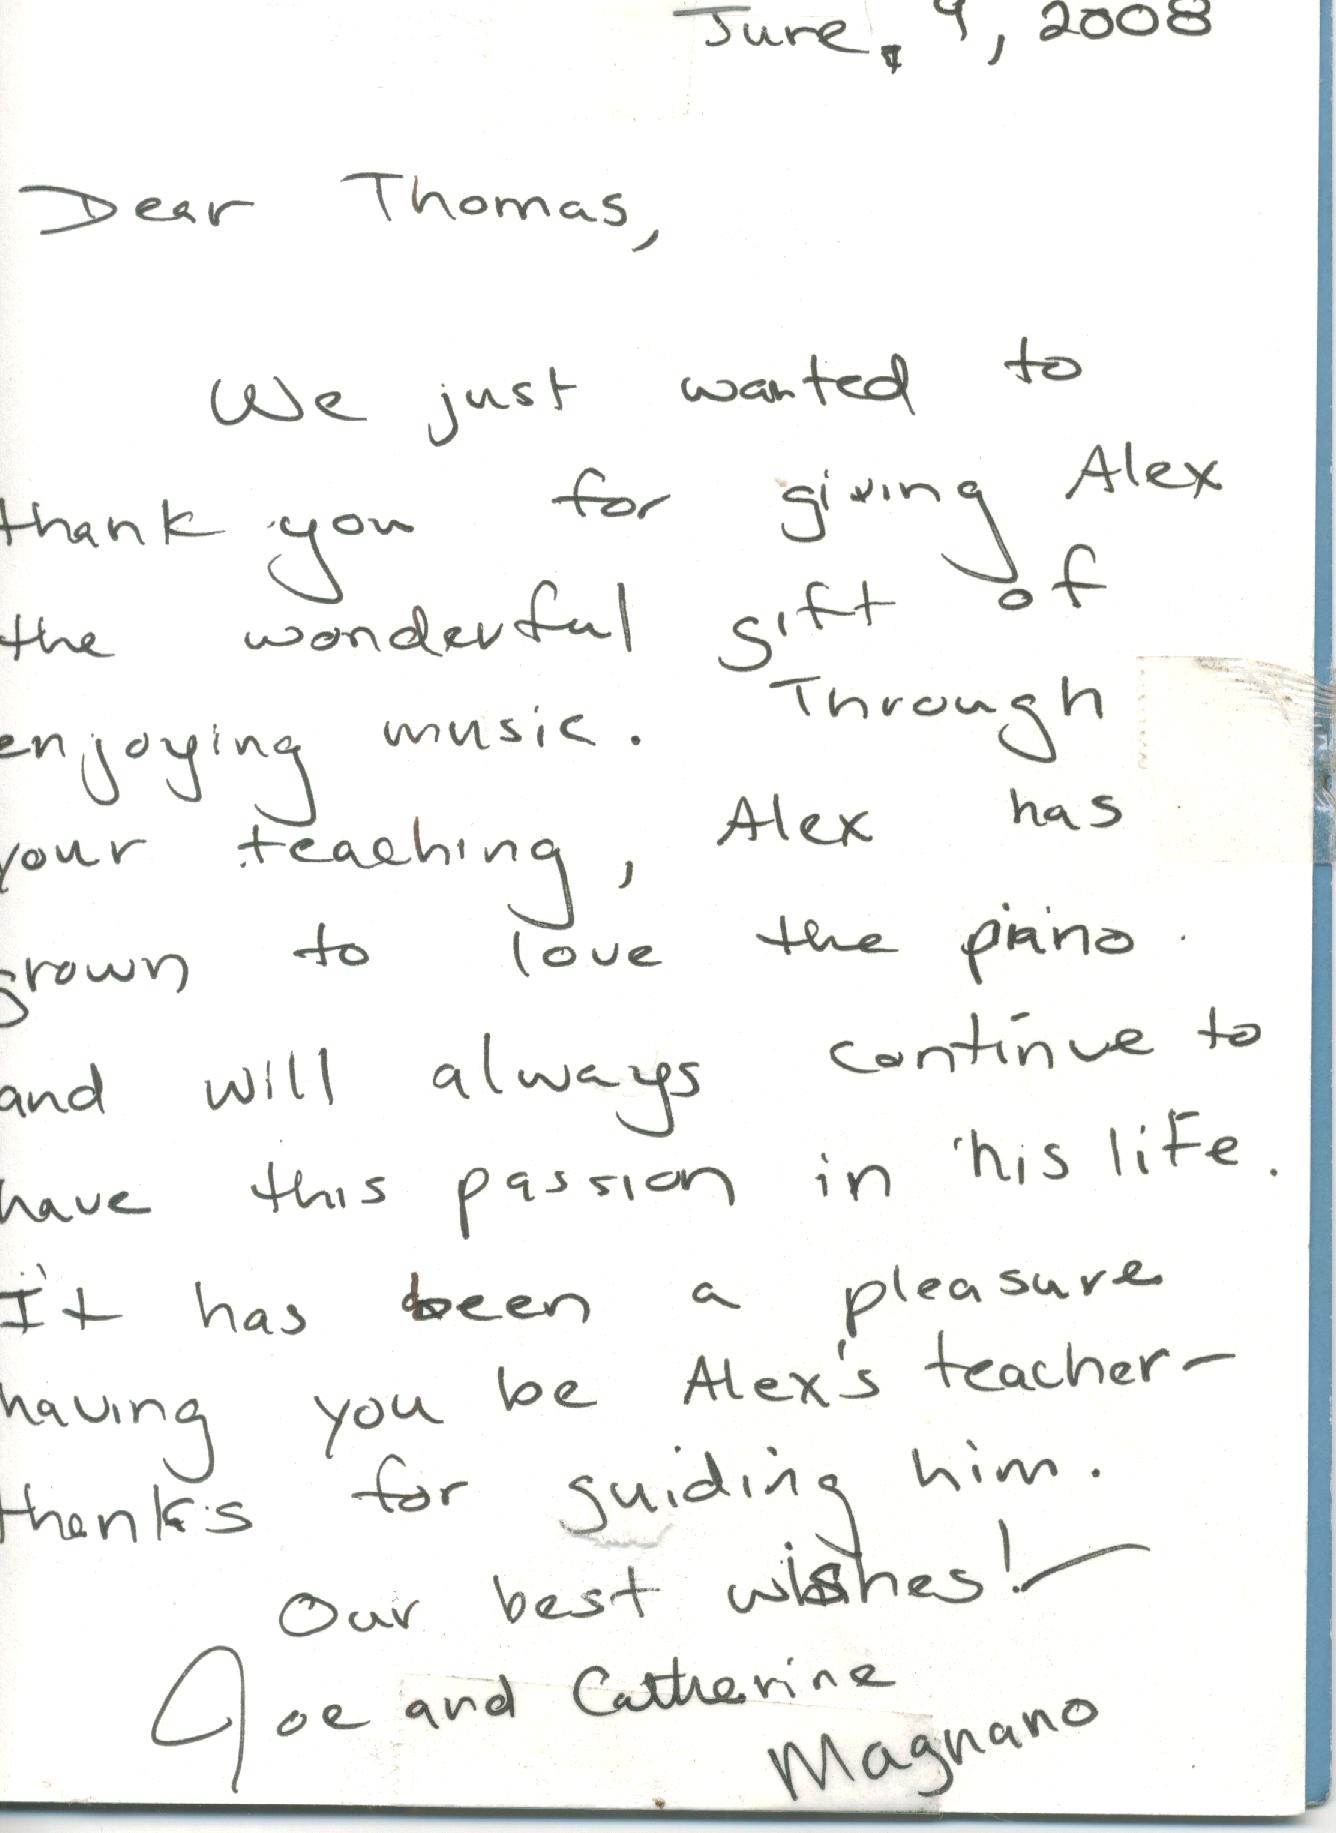 June, 9, 2008
Dear Thomas,
We just wanted to
thank you for giving Alex
the wonderful gift of
enjoying music. Through
your teaching, Alex has
grown to love the piano
and will always continue to
have this passion in his life.
It has been a pleasure
having you be Alex's teacher-
thanks for guiding him.
Our best wishes!
Joe and Catherine
Magnano